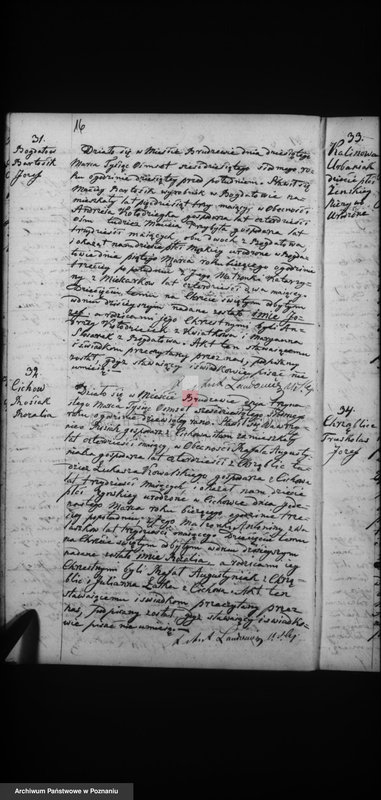 16
31.
Bogdałów
Bartosik
Józef
Działo się w Mieście Brudzewie dnia dziesiątego
Marca Tysiąc Ośmset sześćdziesiątego siódmego ro-
ku o godzinie dziesiątej przed południem. Stawił się
Maciej Bartosik wyrobnik w Bogdałowie za-
mieszkały lat pięćdziesiąt trzy mający, w obecności
Andrzeja Kołodziejka gospodarza lat czterdzieści
ośm, tudzież Macieja gospodarza lat
trzydzieści mających, obu dwóch z Bogdałowa,
i okazał nam dziecię płci Męskiej urodzone w Bogda-
łowie dnia piątego Marca roku bieżącego o godzinie
trzeciej po południu z jego Małżonki Katarzy-
ny z lat czterdzieści dwa mającej.
Dziecięciu temu na Chrzcie świętym odby-
tym w dniu dzisiejszym nadane zostało imie Jó-
zef, a rodzicami jego Chrzestnymi byli An-
drzej Kołodziejek z i Maryanna
z Bogdałowa. Akt ten stawającemu
i świadkom przeczytany przez nas, podpisany
został, gdyż stawający i świadkowie pisać nie
umieją.
32.
Cichow
Rosiak
Rozalia
Działo się w Mieście Brudzewie dnia trzyna-
stego Marca Tysiąc Ośmset sześćdziesiątego siódmego
roku o godzinie dziewiątej rano. Stawił się Wawrzy-
niec Rosiak gospodarz w Cichowie zamieszkały
lat czterdzieści mający, w obecności Rafała Augusty-
niaka gospodarza lat czterdzieści z tu-
dzież Łukasza Kowalskiego gospodarza z Cichowa
lat trzydzieści mających i okazał nam dziecię
płci Żeńskiej urodzone w Cichowie dnia jede-
nastego Marca roku bieżącego o godzinie trze-
ciej po południu, z jego Małżonki Antoniny z
lat trzydzieści mającej. Dziecięciu temu
na Chrzcie świętym odbytym w dniu dzisiejszym
nadane zostało imie Rozalia, a rodzicami jej
Chrzestnymi byli Rafał Augustyniak z
i Julianna z Cichowa. Akt ten
stawającemu i świadkom przeczytany przez
nas, podpisany został, gdyż stawający i świadko-
wie pisać nie umieją.
33.
Kalinowa
Urbaniak
dziecię płci
Żeńskiej
nieżywe
urodzone
34.
Józef
Archiwum Państwowe w Poznaniu